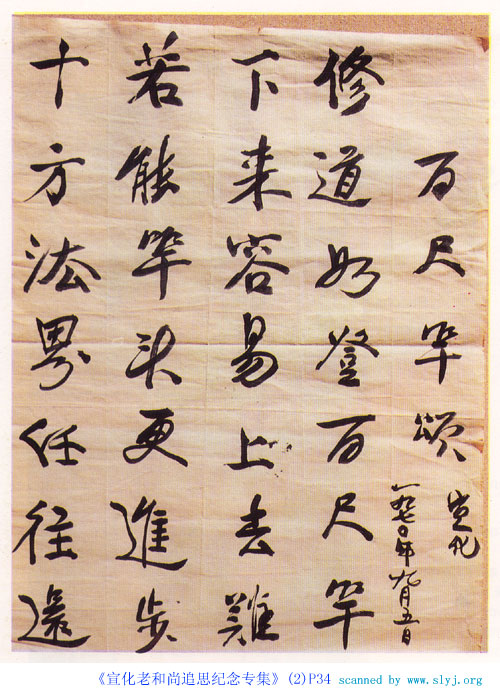 百尺竿頌
宣化
一九七〇年九月五日
修道如登百尺竿
下来容易上去難
若能竿头更進步
十方法界任往還
《宣化老和尚追思纪念专集》(2)P34 scanned by www.slyj.org